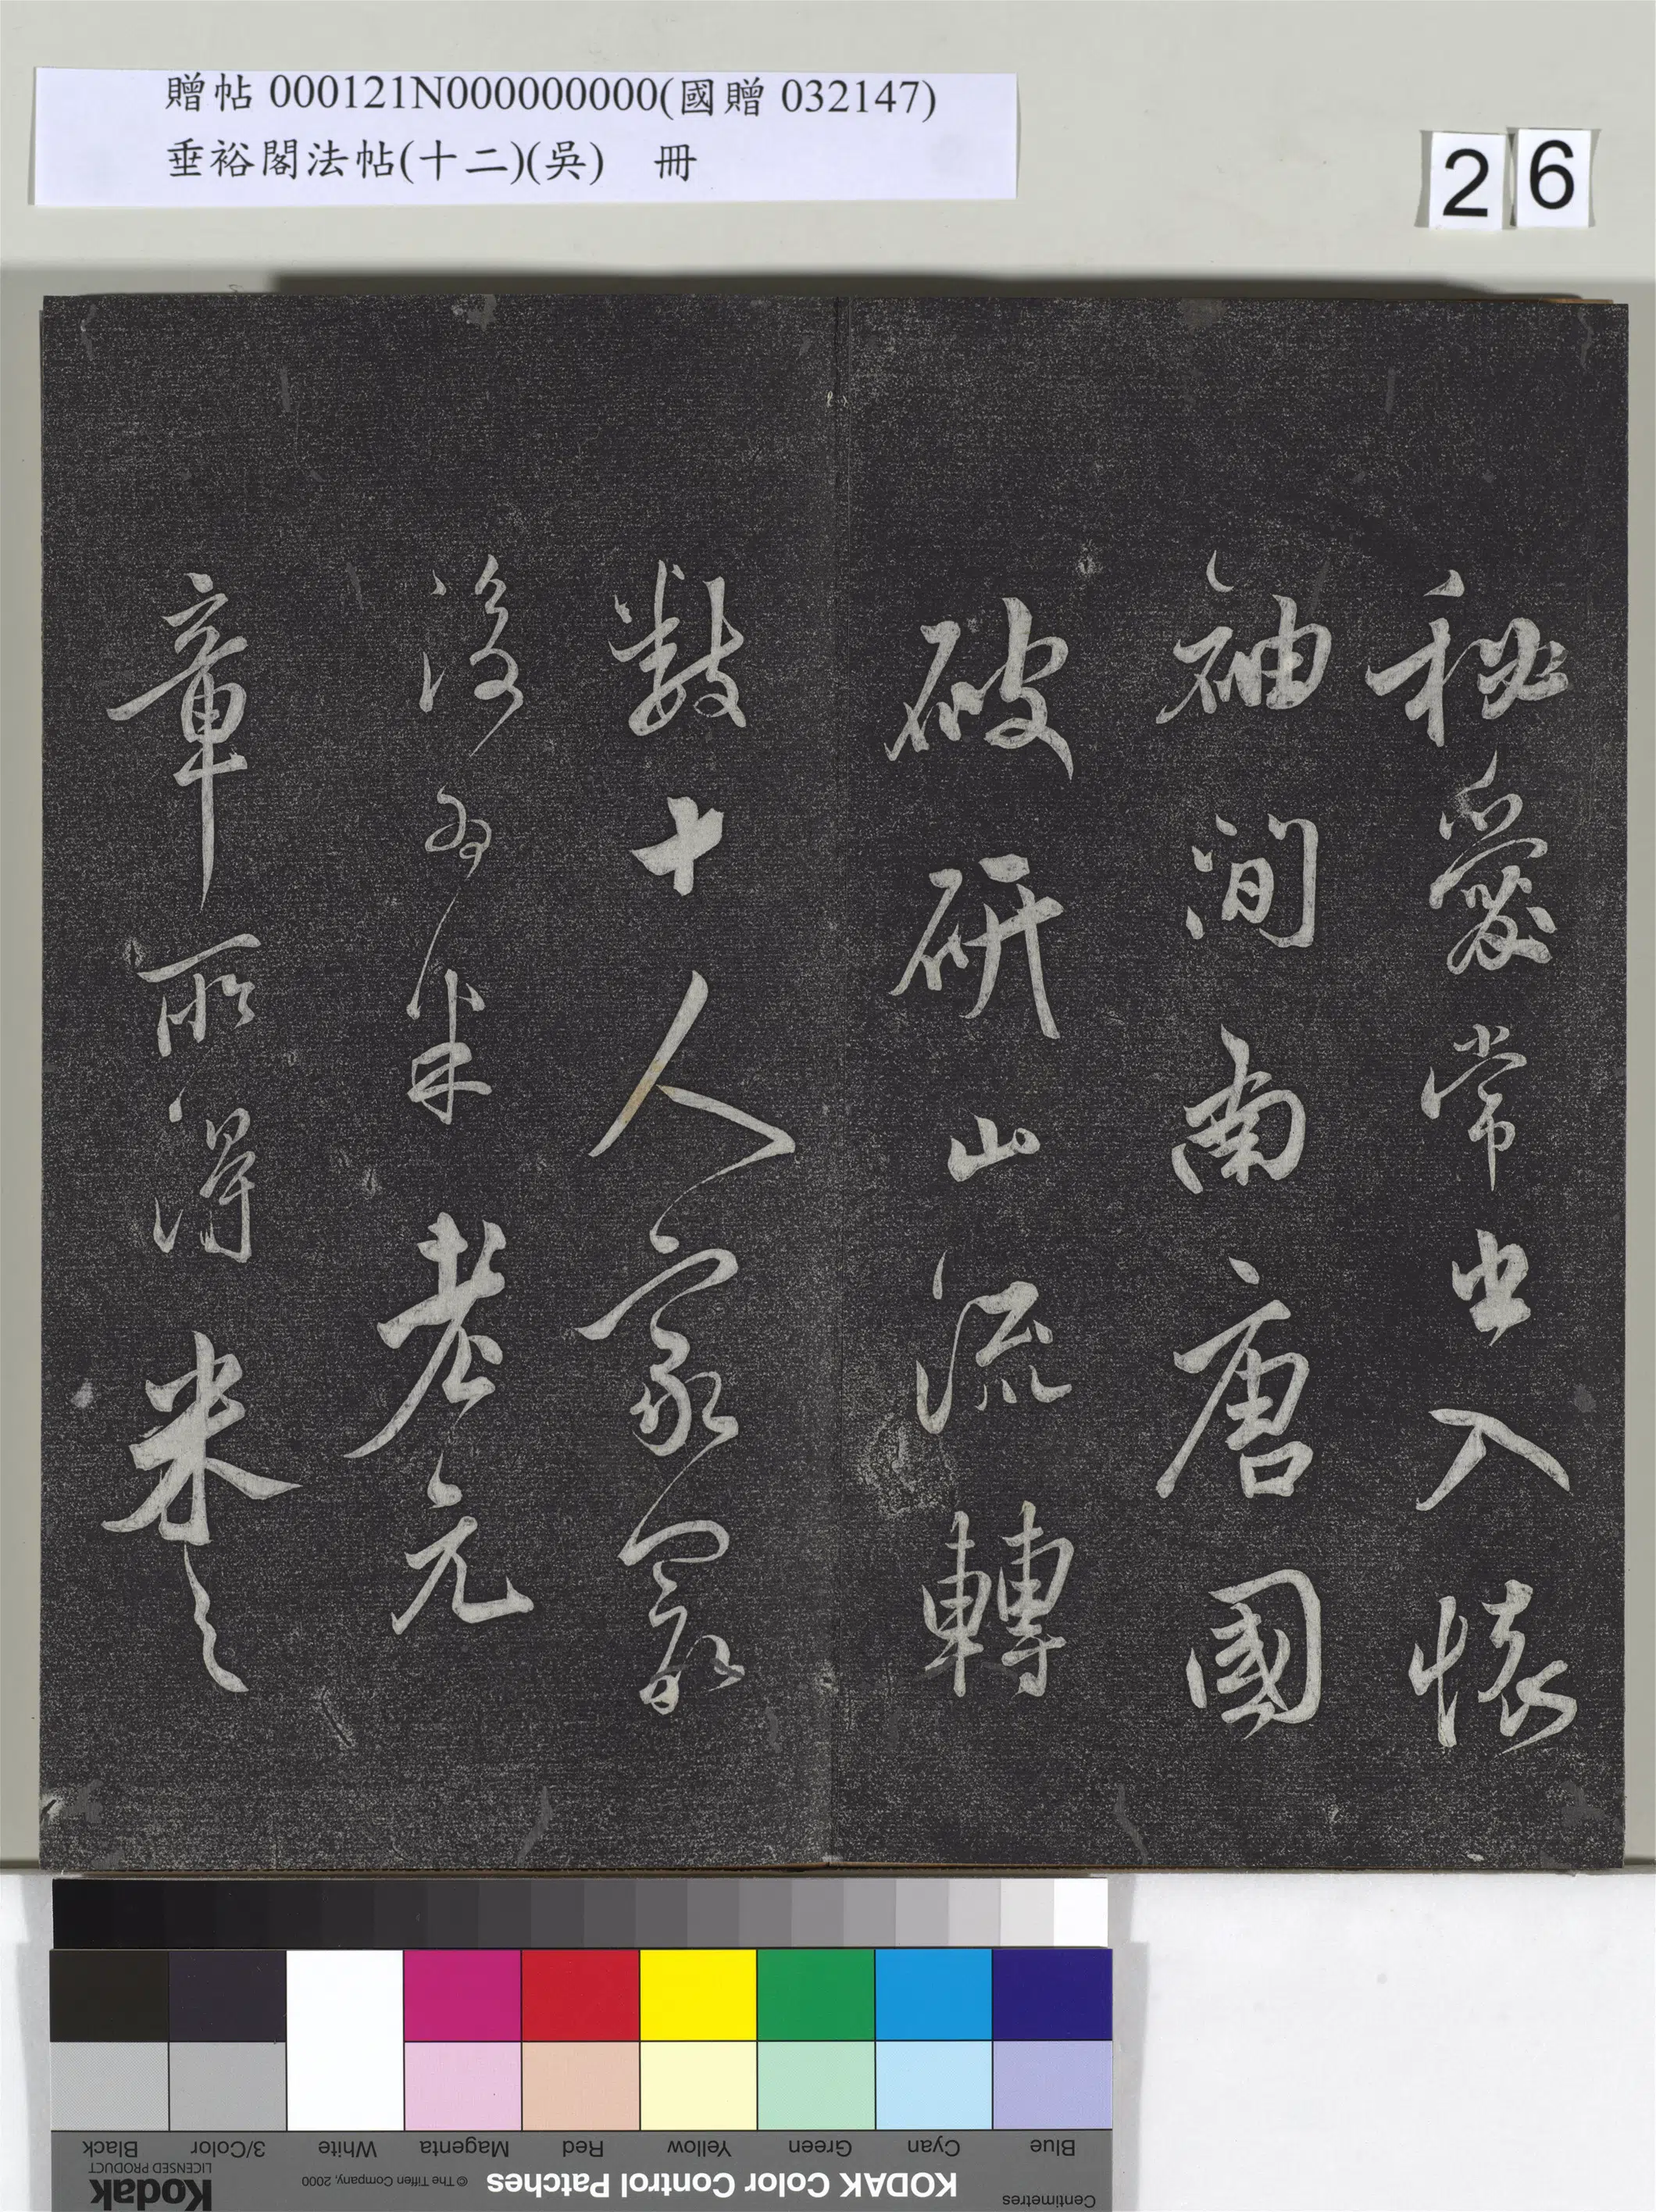 贈帖 000121N000000000(國贈 032147)
垂裕閣法帖(十二)(吳) 冊
26
秘愛常出入懷
袖間南唐國
破研山流轉
數十人家最
後為米老元
章所得米之
Black
3/Color
White
Magenta
Red
Yellow
Green
Cyan
Blue
Kodak
LICENSED PRODUCT
© The Tiffen Company, 2000
KODAK Color Control Patches
Centimetres